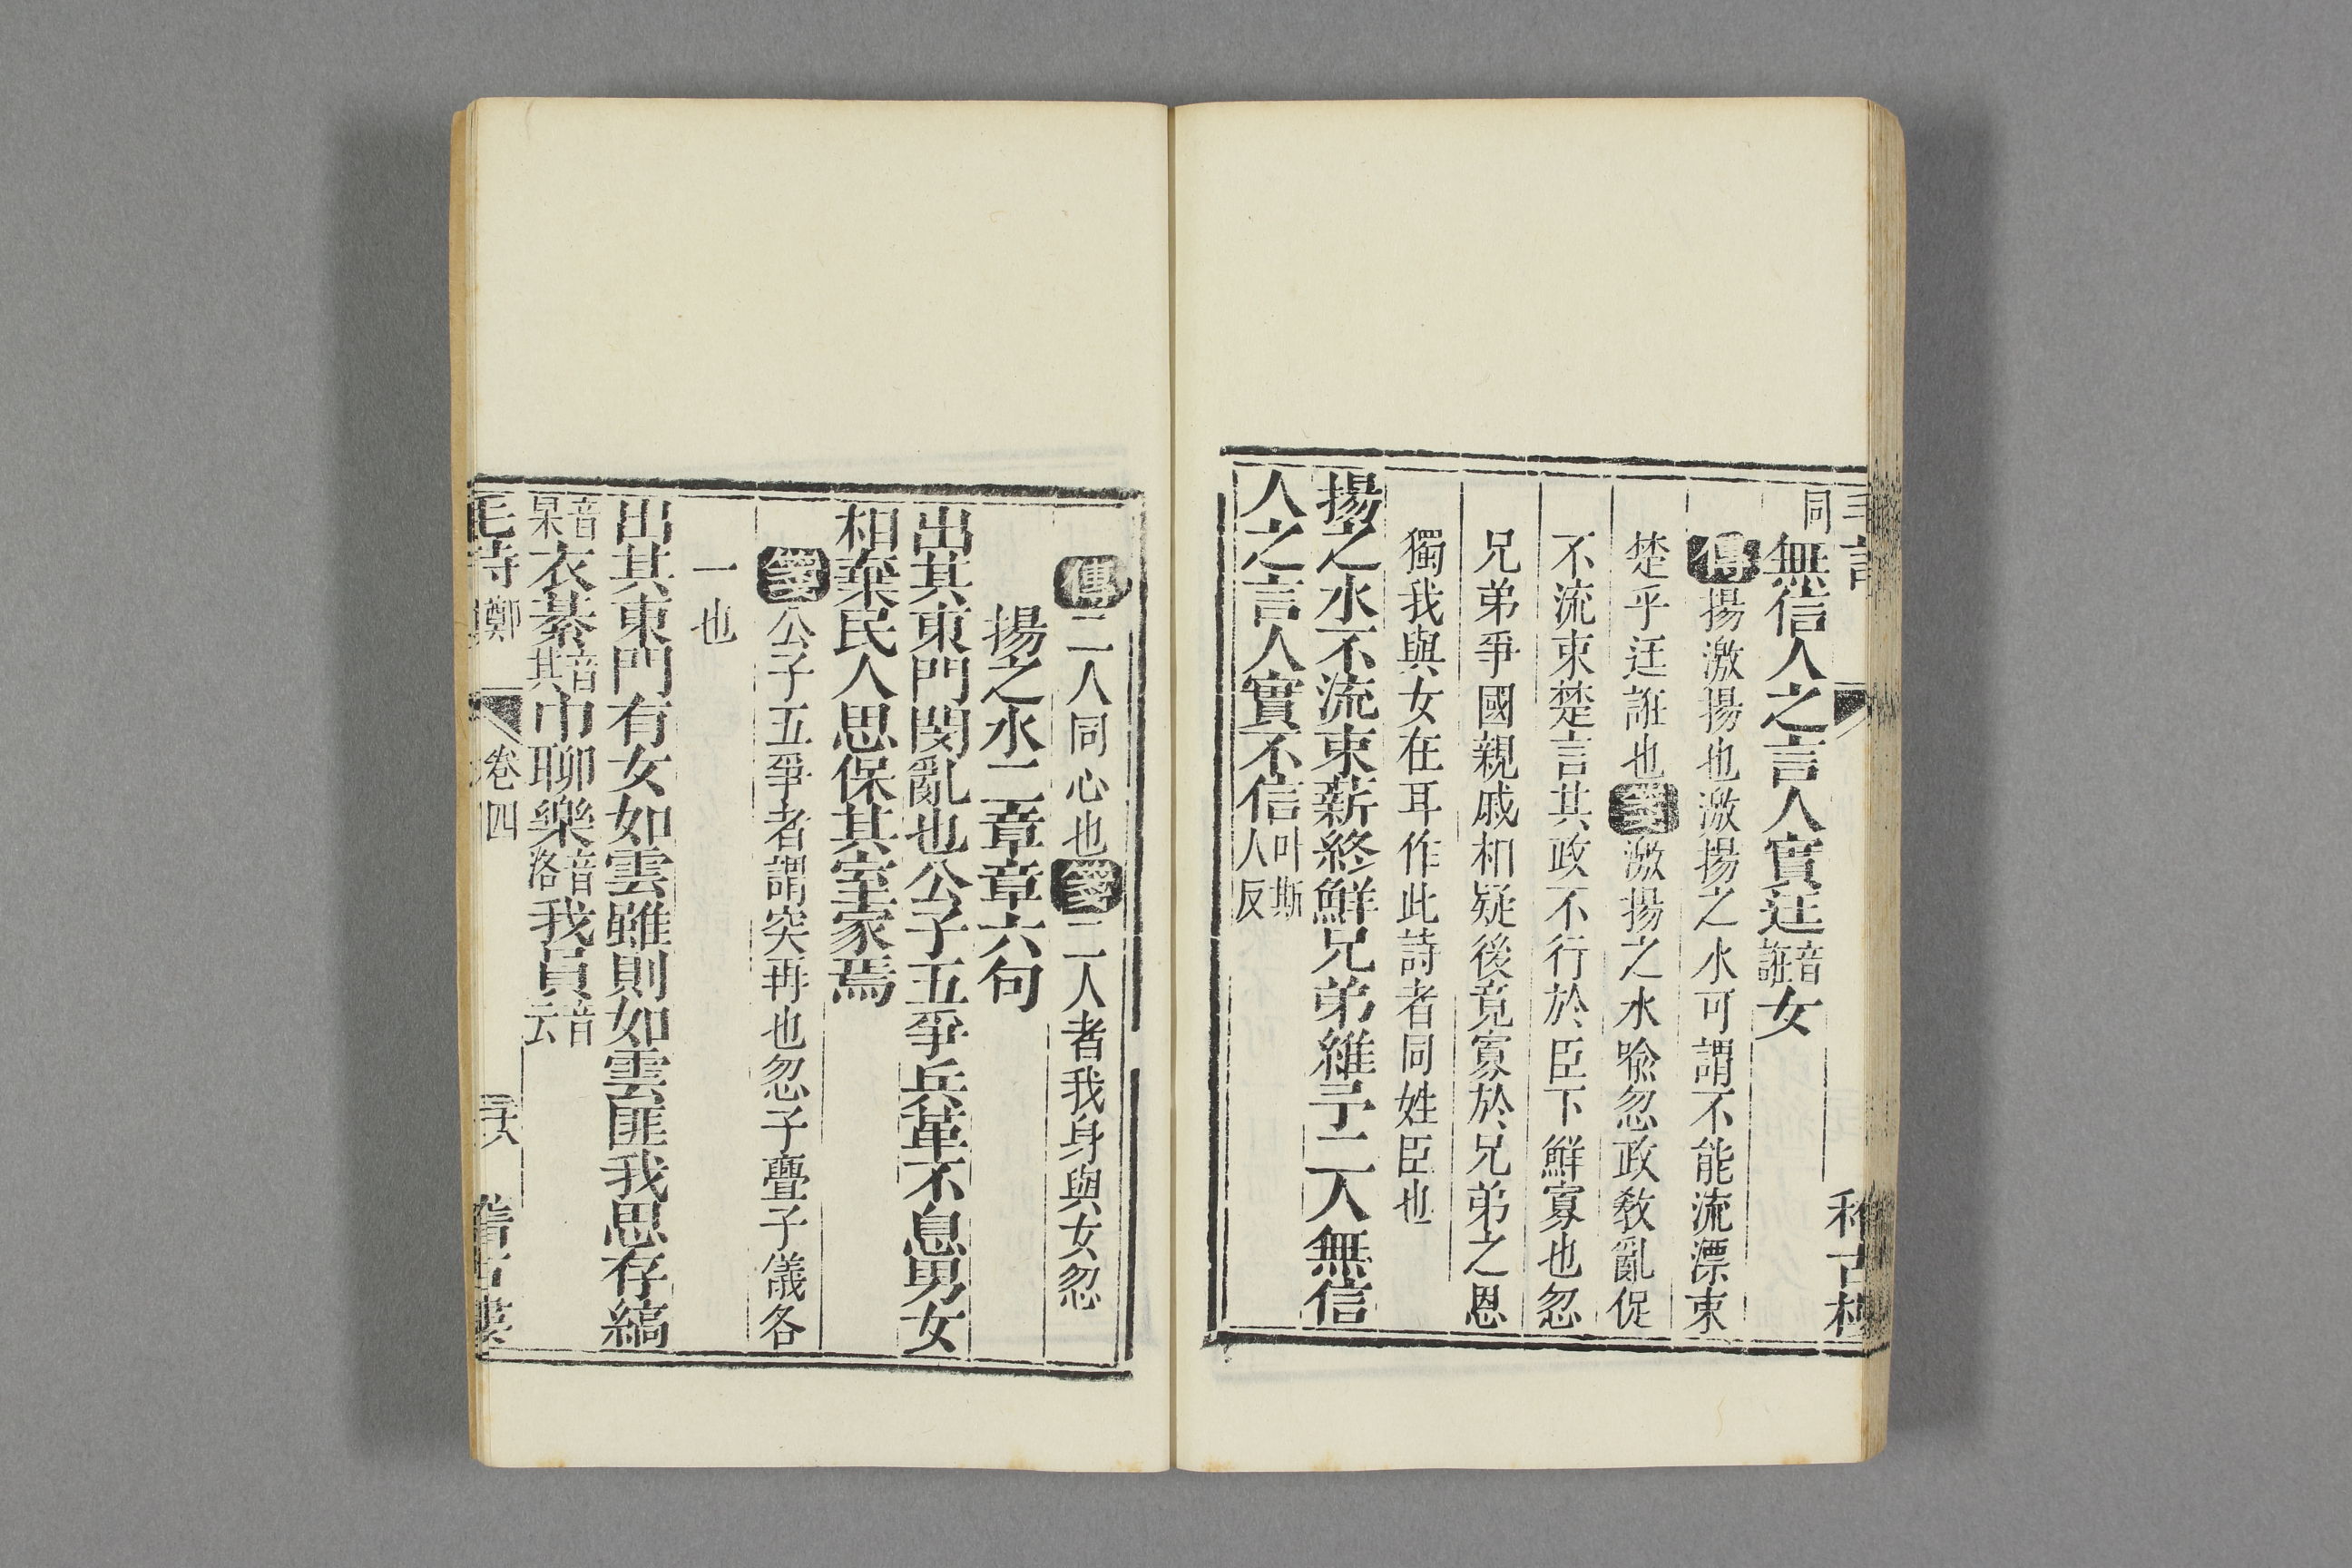 毛詩 稽古樓
同無信人之言人實迋音誑女
傳揚激揚也激揚之水可謂不能流漂束
楚乎迋誑也箋激揚之水喩忽政敎亂促
不流束楚言其政不行於臣下鮮寡也忽
兄弟爭國親戚相疑後竟寡於兄弟之恩
獨我與女在耳作此詩者同姓臣也
揚之水不流束薪終鮮兄弟維予二人無信
人之言人實不信叶斯人反
傳二人同心也箋二人者我身與女忽
揚之水二章章六句
出其東門閔亂也公子五爭兵革不息男女
相棄民人思保其室家焉
箋公子五爭者謂突再也忽子亹子儀各
一也
出其東門有女如雲雖則如雲匪我思存縞
音杲衣綦音其巾聊樂音洛我員音云
毛詩 鄭 卷四 稽古樓